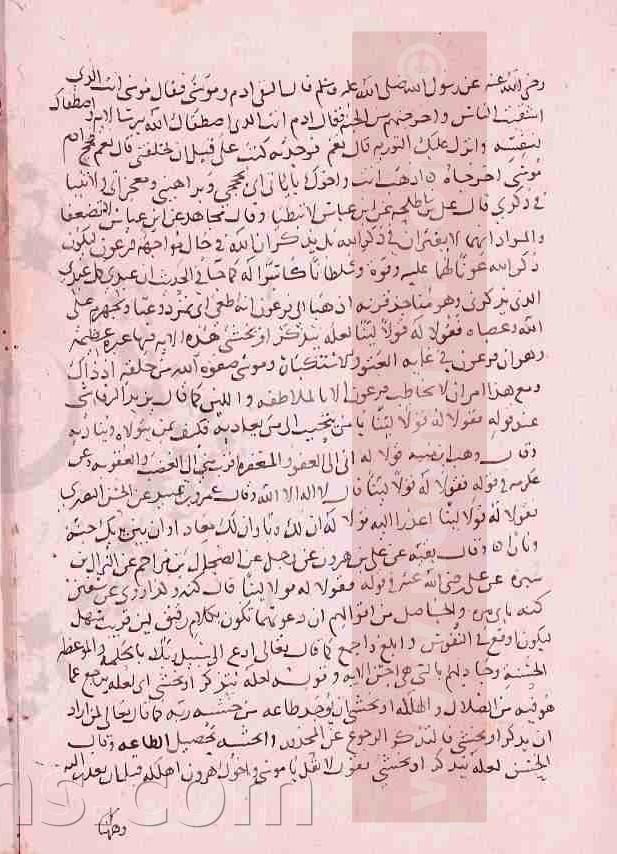 رضي الله عنه عن رسول الله صلى الله عليه وسلم قال التقى ادم وموسى فقال موسى انت الذي
اشقيت الناس واخرجتهم من الجنة فقال ادم انت الذي اصطفاك الله برسالاته واصطفاك
لنفسه وانزل عليك التوريه قال نعم فوجدته كتب علي قبل ان يخلقني قال نعم فحج ادم
موسى اخرجاه اذهب انت واخوك باياتي اي بحججي وبراهيني ومعجزاتي ولا تنيا
في ذكري قال علي بن ابي طلحه عن ابن عباس لا تبطيا وقال مجاهد عن ابن عباس لا تضعفا
والمراد انهما لا يفتران في ذكر الله بل يذكران الله في حال مواجهة فرعون ليكون
ذكر الله عونا لهما عليه وقوة وسلطانا كاسرا له كما جا في الحديث ان عبدي كل عبدي
الذي يذكرني وهو مناجز قرنه اذهبا الى فرعون انه طغى اي تمرد وعتا وتجهرم على
الله وعصاه فقولا له قولا لينا لعله يتذكر او يخشى هذه الايه فيها عبرة عظيمة
وهو ان فرعون في غاية العتو والاستكبار وموسى صفوة الله من خلقه اذ ذاك
ومع هذا امر ان لا يخاطب فرعون الا بالملاطفه واللين كما قال يزيد الرقاشي
عند قوله فقولا له قولا لينا يا من يتحبب الى من يعاديه فكيف بمن يتولاه ويناديه
وقال وهب بن منبه قولا له اني الى العفو والمغفرة اقرب مني الى الغضب والعقوبه وعن
عكرمه في قوله فقولا له قولا لينا قال لا اله الا الله وقال عمرو بن عبيد عن الحسن البصري
فقولا له قولا لينا اعذرا اليه قولا له ان لك ربا وان لك معادا وان بين يديك جنة
ونارا وقال بقيه عن علي بن هرون عن رجل عن الضحاك بن مزاحم عن النزال بن
سبرة عن علي رضي الله عنه في قوله فقولا له قولا لينا قال كنه وكذا روي عن سفين
كنه بابي مره والحاصل من اقوالهم ان دعوتهما تكون بكلام رفيق لين قريب سهل
ليكون اوقع في النفوس وابلغ وانجع كما قال تعالى ادع الى سبيل ربك بالحكمة والموعظه
الحسنه وجادلهم بالتي هي احسن الايه وقوله لعله يتذكر او يخشى اي لعله يرجع عما
هو فيه من الضلال والهلكه او يخشى اي يوجد طاعه من خشية ربه كما قال تعالى لمن اراد
ان يذكر او يخشى فالتذكر الرجوع عن المحذور والخشيه تحصيل الطاعه وقال
الحسن لعله يتذكر او يخشى يقول لا تقل يا موسى واخوك هرون اهلكه قبل ان يعذر اليه
وههنا